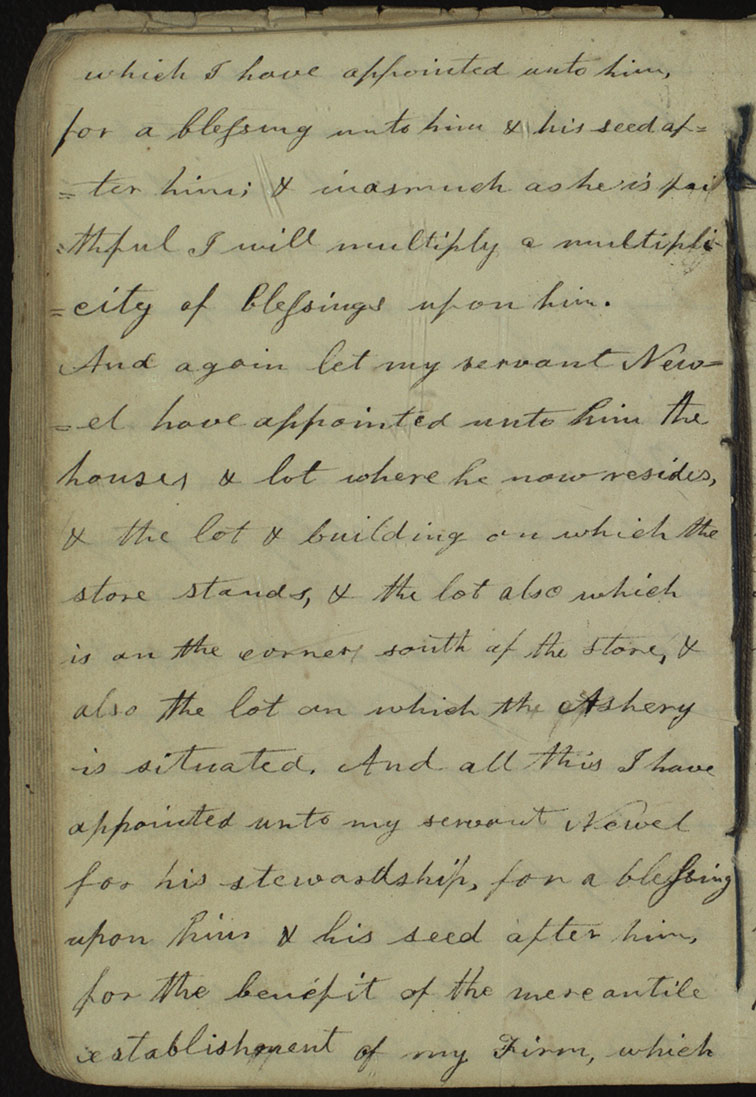 which I have appointed unto him,
for a blessing unto him & his seed af=
=ter him; & inasmuch as he is fai
=thful I will multiply a multipli-
=city of blessings upon him.
And again let my servant New=
=el have appointed unto him the
houses & lot where he now resides,
& the lot & building on which the
store stands, & the lot also which
is on the corner south of the store, &
also the lot on which the Ashery
is situated. And all this I have
appointed unto my servant Newel
for his stewardship, for a blessing
upon him & his seed after him,
for the benefit of the mercantile
establishment of my Firm, which